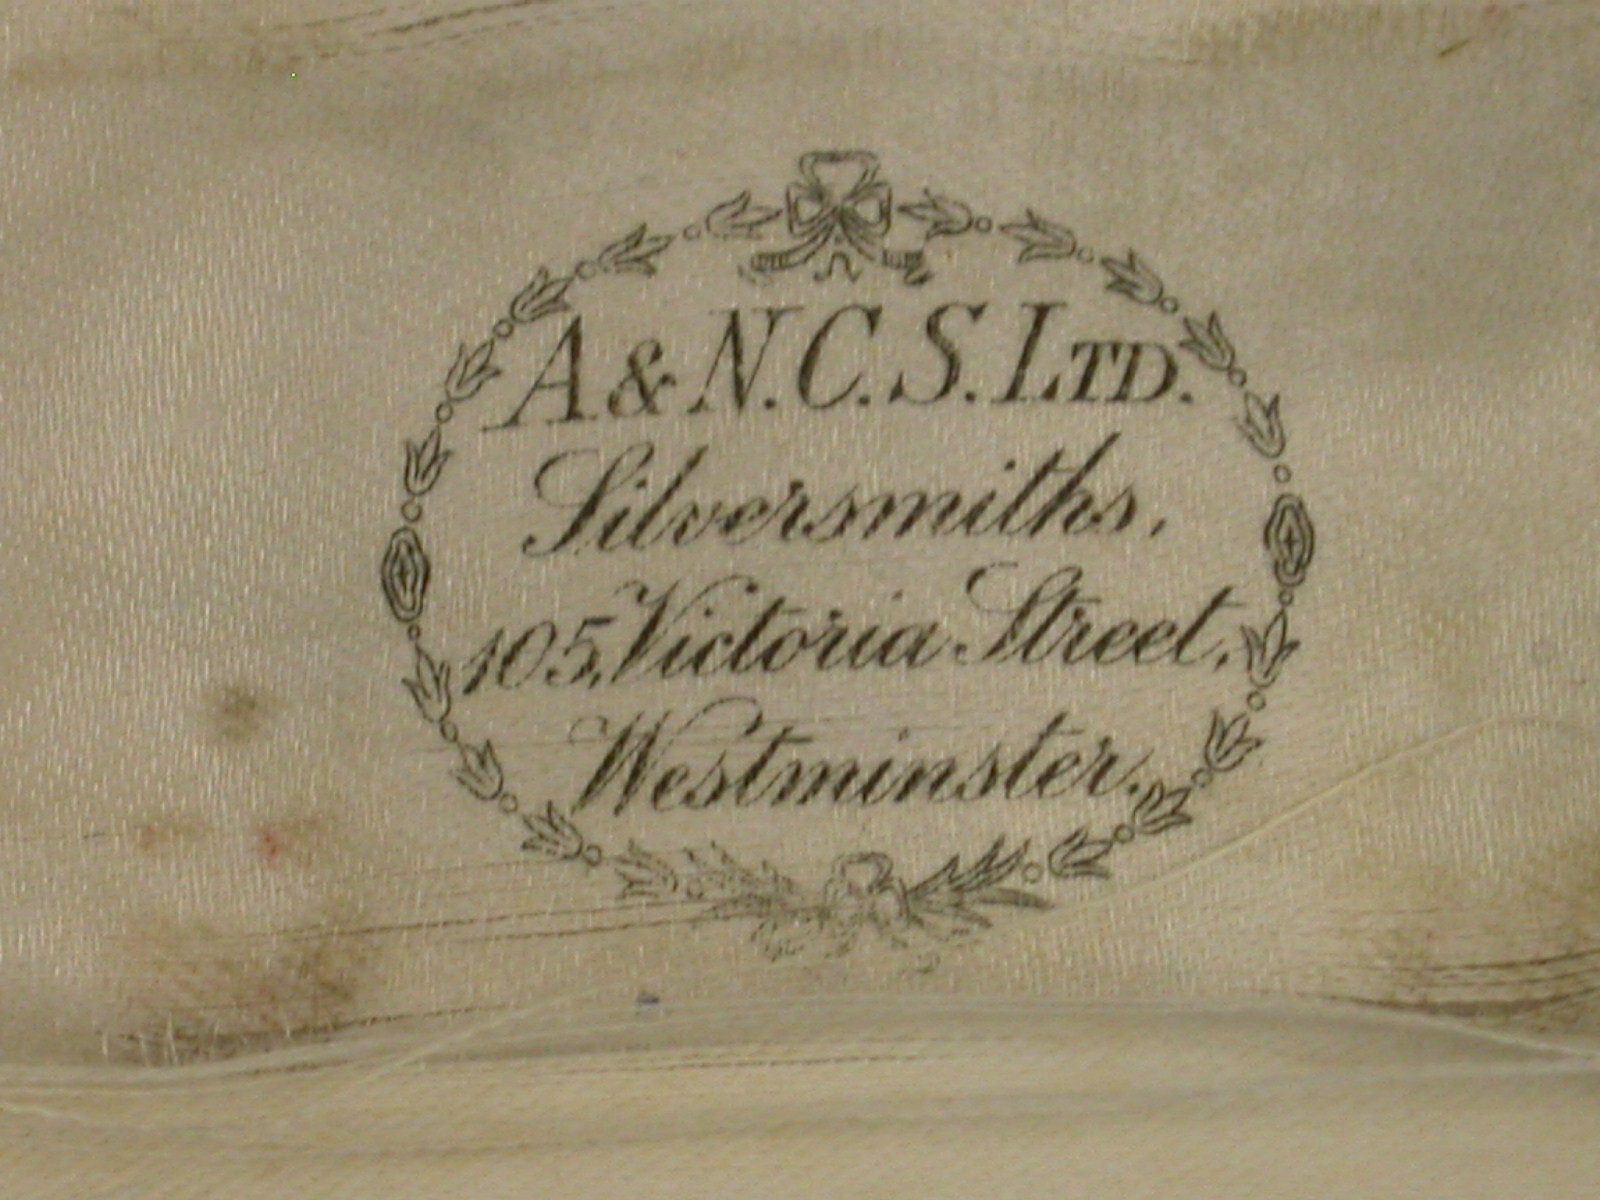 A & N. C. S. LTD.
Silversmiths,
105, Victoria Street,
Westminster.